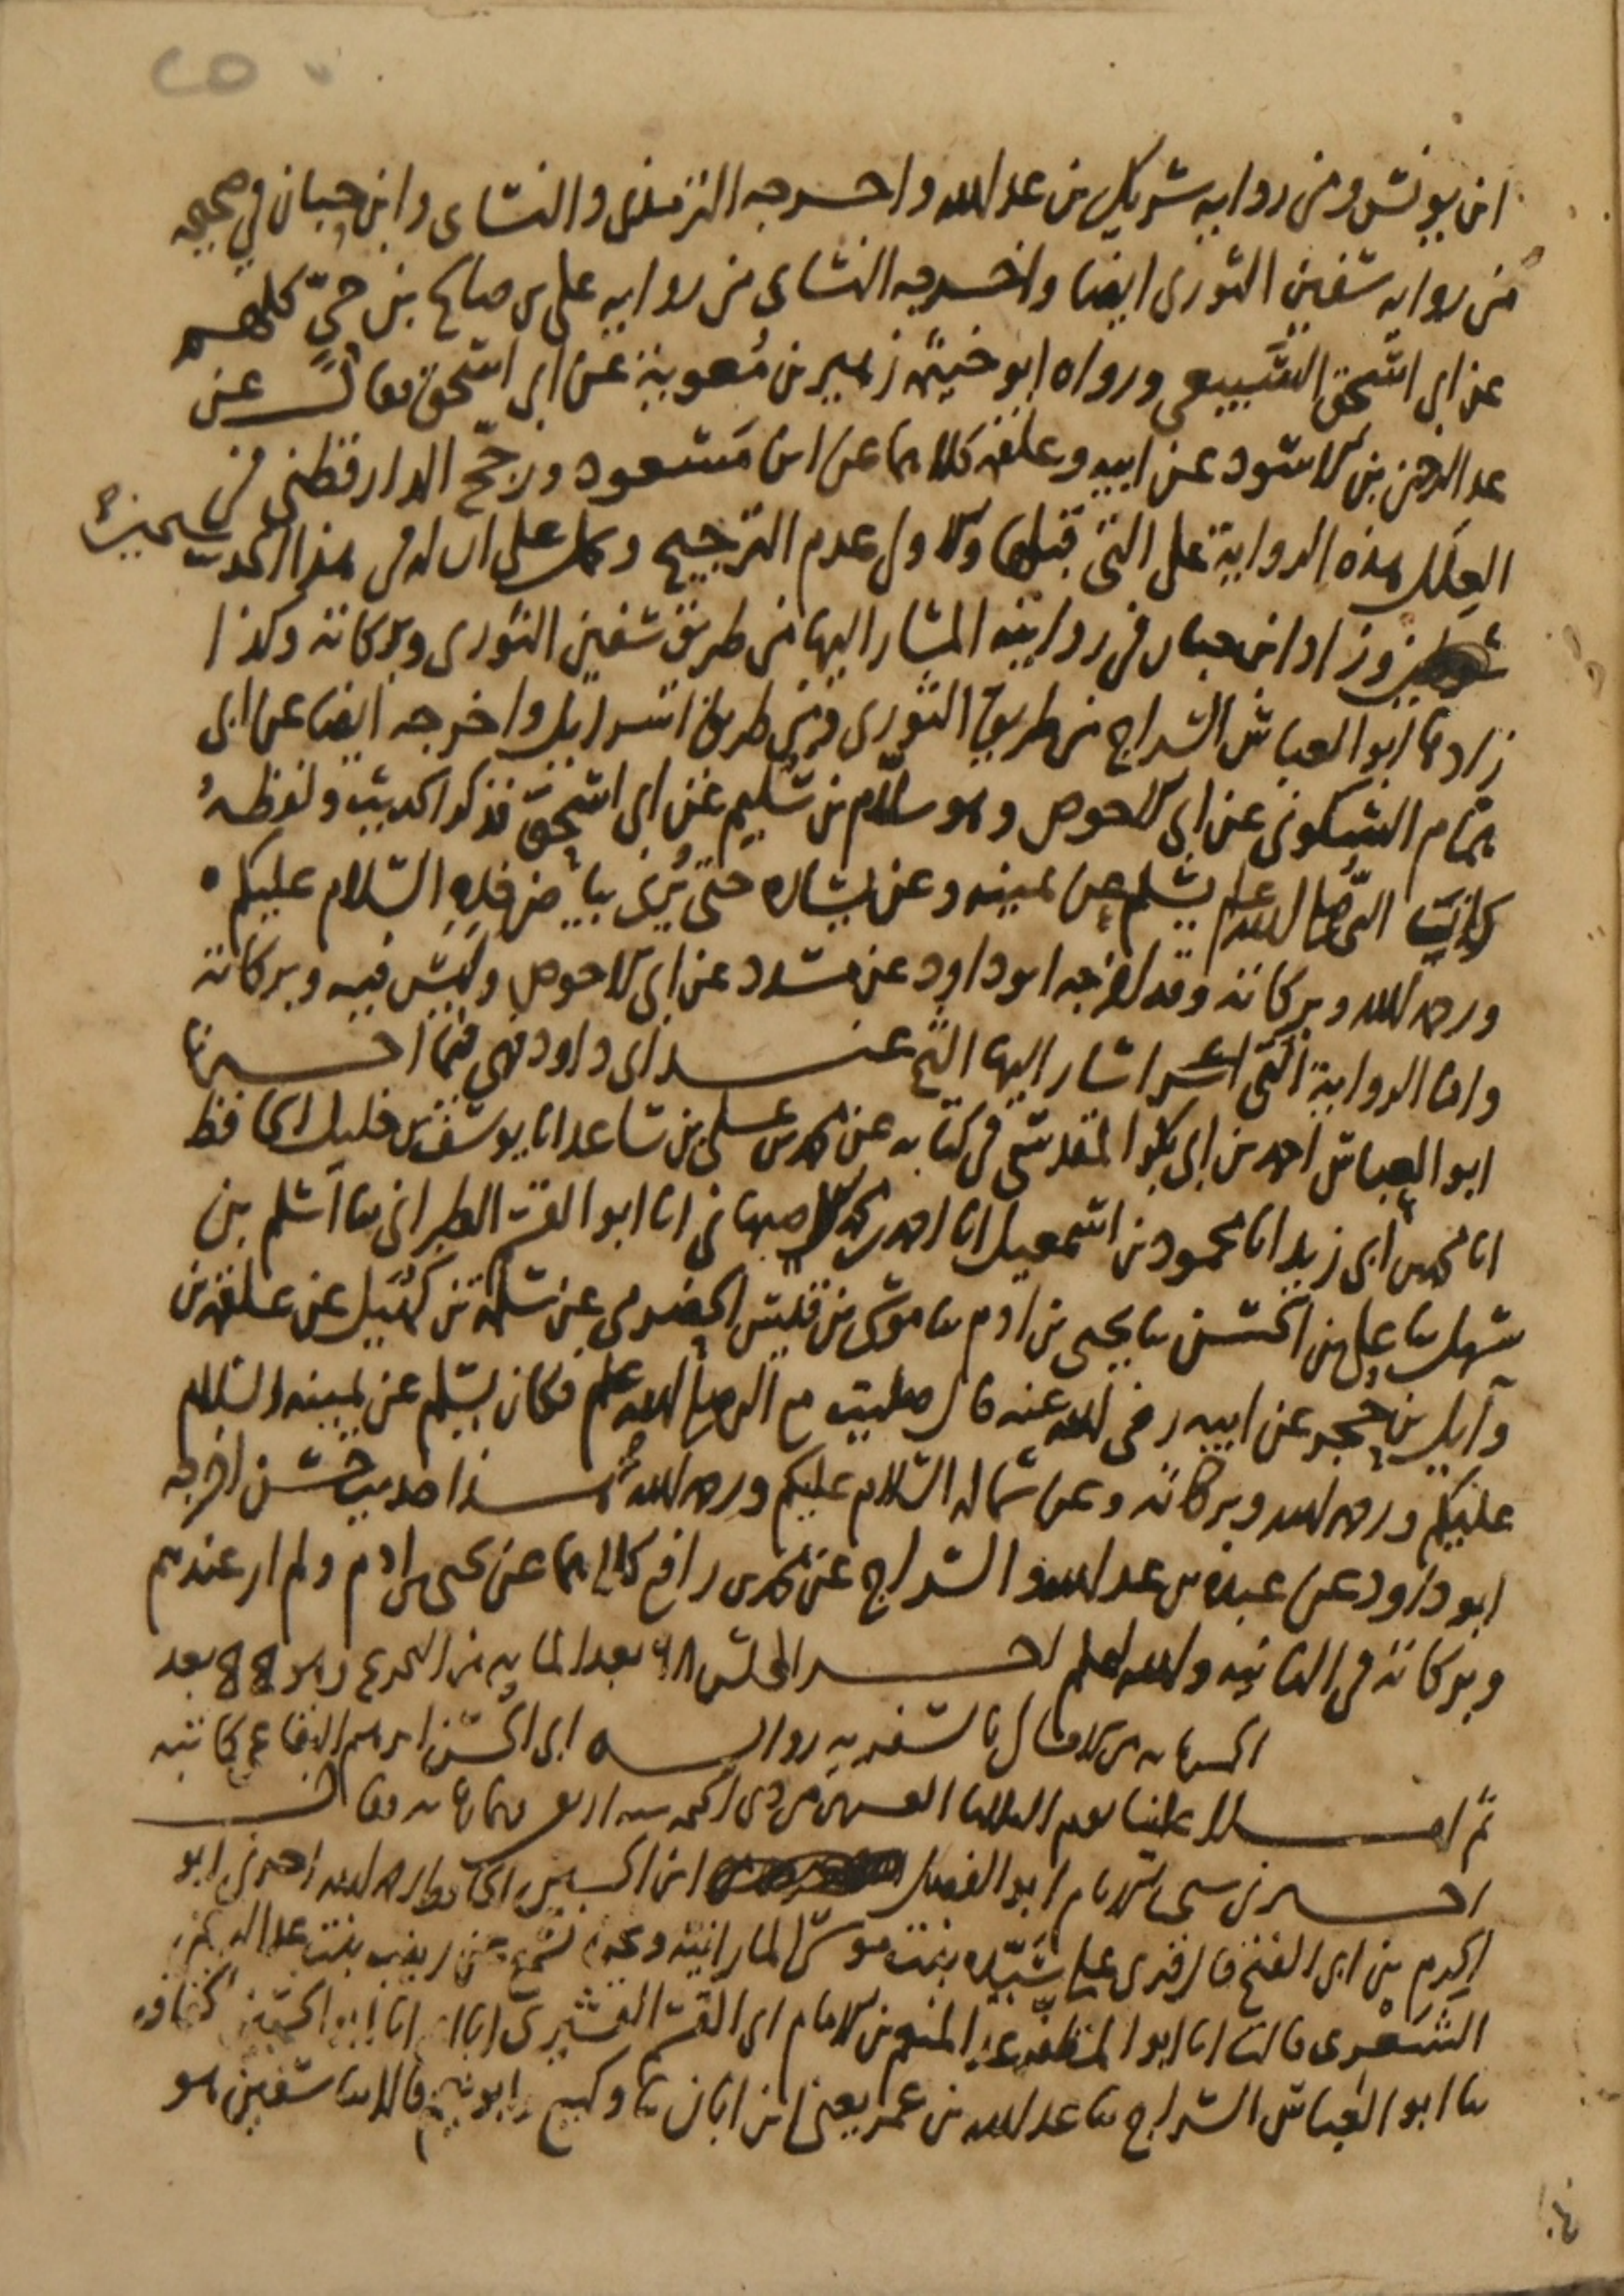 ابن يونس ومن رواية شريك بن عبد الله واخرجه الترمذي والنساي وابن حبان في صحيحه
من رواية سفين الثوري ايضا واخرجه النساي من رواية علي بن صالح بن حيّ كلهم
عن ابي اسحق السَّبيعي ورواه ابو خيثمه زهير بن مُعوية عن ابي اسحق فقال عن
عبد الرحمن بن الاسود عن ابيه وعلقمه كلاهما عن ابن مَسعود ورجّح الدارقطني في
العِلَل هذه الرواية على التي قبلها والاول عدم الترجيح و على ان له في هذا الحديث شيخين
وزاد ابن حبان في روايته المشار اليها من طريق سفين الثوري وبركاته وكذا
زادها ابو العباس السراج من طريق الثوري ومن طريق اسراييل واخرجه ايضا عن ابي
همّام السكوني عن ابي الاحوص وهو سلّام بن سُليم عن ابي اسحق فذكر الحديث ولفظهُ
رايت النبي صلى الله عليه وسلم يسلم عن يمينه وعن يساره حتى يُرى بياض خده السلام عليكم
ورحمه الله وبركاته وقد اخرجه ابو داود عن مسدد عن ابي الاحوص وليس فيه وبركاته
واما الرواية التي اشار اليها الشيخ عند ابي داود فهي فيما اخبرنا
ابو العباس احمد بن ابي بكر المقدسي في كتابه عن محمد بن علي بن ساعد انا يوسف بن خليل الحافظ
انا محمد بن ابي زيد انا محمود بن اسمعيل انا احمد بن محمد الاصبهاني انا ابو القسم الطبراني ثنا اسلم بن
سهل ثنا علي بن الحسن ثنا يحيى بن ادم ثنا موسى بن قيس الحضرمي عن سلمة بن كُهَيل عن علقمه بن
وآيل بن حجر عن ابيه رضي الله عنه قال صليت مع النبي صلى الله عليه وسلم فكان يسلم عن يمينه السلام
عليكم ورحمه الله وبركاته وعن شماله السلام عليكم ورحمه الله هذا حديث حسن اخرجه
ابو داود عن عبدة بن عبد الله والسراج عن محمد بن رافع كلاهما عن يحيى بن ادم ولم ار عندهم
وبركاته في الثانيه والله اعلم اخر المجلس ٩٨ بعد الماية من التخريج وهو بعد
من الامالي رواية ابي الحسن ابرهيم البقاعي كاتبه
ثم املا علينا يوم الثلاثا العشرين من ذي الحجه سنه اربع فقال
اخبرني شيخ الاسلام ابو الفضل ابن الحسين الحافظ رحمه الله اخبرني ابو
الحرم بن ابي الفتح قال قرى على سَيّده بنت موسى المارانيّه وعن زينب بنت عبد الرحمن
الشعْرى قالت انا ابو المظفر عبد المنعم بن الامام ابي القسم القشيري انا ابي انا ابو الحسين الخفاف
ثنا ابو العباس السراج ثنا عبد الله بن عمر يعني ابن ابان ثنا وكيع وابو نعيم قالا ثنا سفين هو